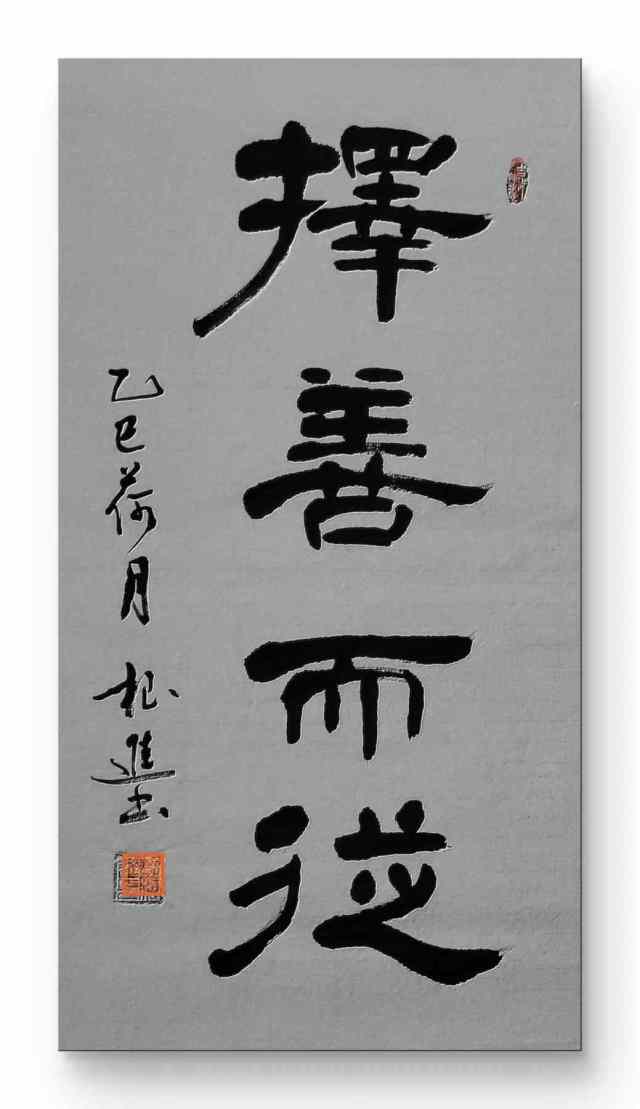 擇善而從
乙巳荷月 根進书